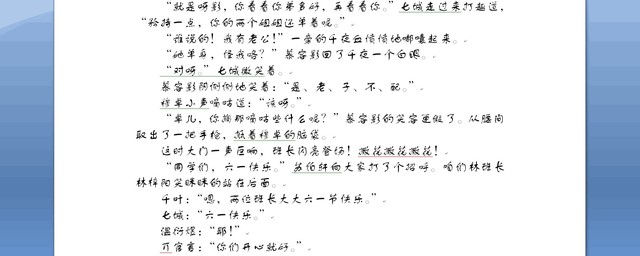 “就是呀彩，你看看你单多好，再看看你。”七城走过来打趣道，
“矜持一点，你的两个姐姐还单着呢。”
“谁说的！我有老公！”一旁的千夜忿忿地嘟囔起来。
“她单身，怪我咯？”慕容彩回了千夜一个白眼。
“对呀。”七城微笑着。
慕容彩阴恻恻地笑着：“是、老、子、不、配。”
穆卓小声嘀咕道：“该呀。”
“卓儿，你搁那嘀咕些什么呢？”慕容彩的笑容更假了。从腰间
取出了一把手枪，抵着穆卓的脑袋。
这时大门一声巨响，班长闪亮登场！撒花撒花撒花！
“同学们，六一快乐。”苏伯轩向大家打了个招呼。咱们林班长
林梓阳笑眯眯的站在后面。
千叶：“嗯，两位班长大大六一节快乐。”
七城：“六一快乐。”
温衍煜：“耶！”
官官：“你们开心就好。”